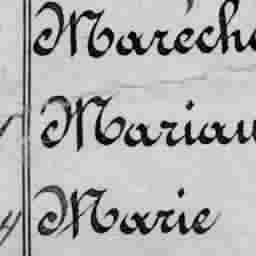 Maréch
Mariau
Marie